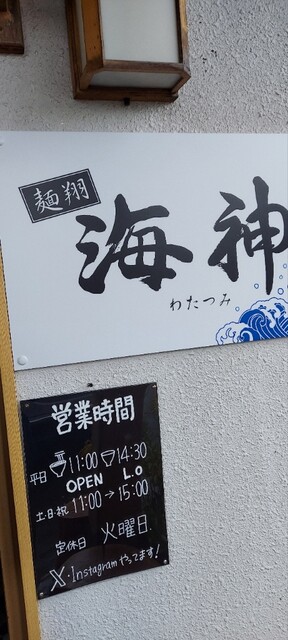 麺翔
海神
わたつみ
営業時間
平日 11:00 14:30
OPEN L.O
土・日・祝 11:00→15:00
定休日 火曜日
X・Instagramやってます!